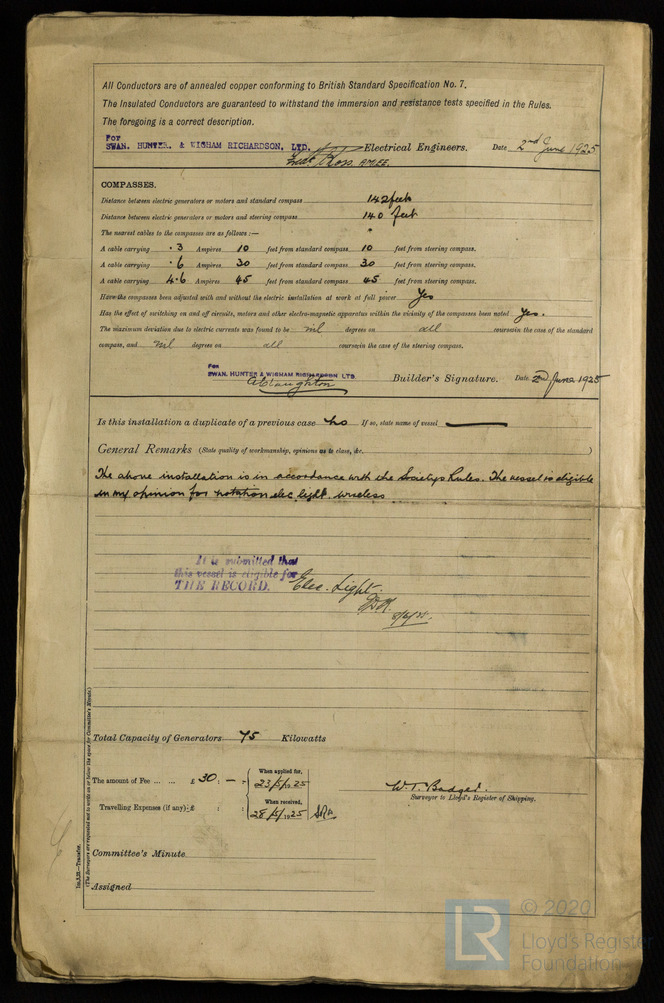 All Conductors are of annealed copper conforming to British Standard Specification No. 7.
The Insulated Conductors are guaranteed to withstand the immersion and resistance tests specified in the Rules.
The foregoing is a correct description.
For
SWAN, HUNTER, & WIGHAM RICHARDSON, LTD. Electrical Engineers. Date 2nd June 1925
Ross A.M.I.E.E.
COMPASSES.
Distance between electric generators or motors and standard compass 142 feet
Distance between electric generators or motors and steering compass 140 feet
The nearest cables to the compasses are as follows:—
A cable carrying .3 Ampères 10 feet from standard compass 10 feet from steering compass.
A cable carrying .6 Ampères 30 feet from standard compass 30 feet from steering compass.
A cable carrying 4.6 Ampères 45 feet from standard compass 45 feet from steering compass.
Have the compasses been adjusted with and without the electric installation at work at full power Yes
Has the effect of switching on and off circuits, motors and other electro-magnetic apparatus within the vicinity of the compasses been noted Yes.
The maximum deviation due to electric currents was found to be nil degrees on all course in the case of the standard
compass, and nil degrees on all course in the case of the steering compass.
For
SWAN, HUNTER & WIGHAM RICHARDSON LTD.
Builder's Signature. Date 2nd June 1925
Is this installation a duplicate of a previous case no If so, state name of vessel
General Remarks (State quality of workmanship, opinions as to class, &c.)
The above installation is in accordance with the Society's Rules. The vessel is eligible
in my opinion for notation elec light. wireless
It is submitted that
this vessel is eligible for
THE RECORD. Elec. Light.
Total Capacity of Generators 75 Kilowatts
The amount of Fee ... ... £ 30 : — :
When applied for,
23/5/1925
Travelling Expenses (if any) £ : :
When received,
28/5/1925
W. T. Badger.
Surveyor to Lloyd's Register of Shipping.
Committee's Minute
Assigned
(The Surveyors are requested not to write on or below the space for Committee's Minute.)
LR
© 2020
Lloyd's Register
Foundation